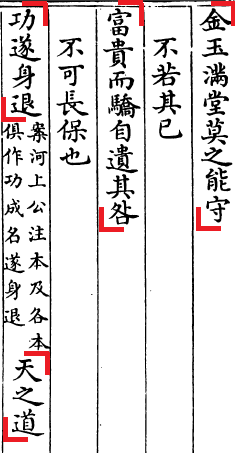 金玉滿堂莫之能守
不若其已
富貴而驕自遺其咎
不可長保也
功遂身退
案河上公注本及各本
俱作功成名遂身退
天之道